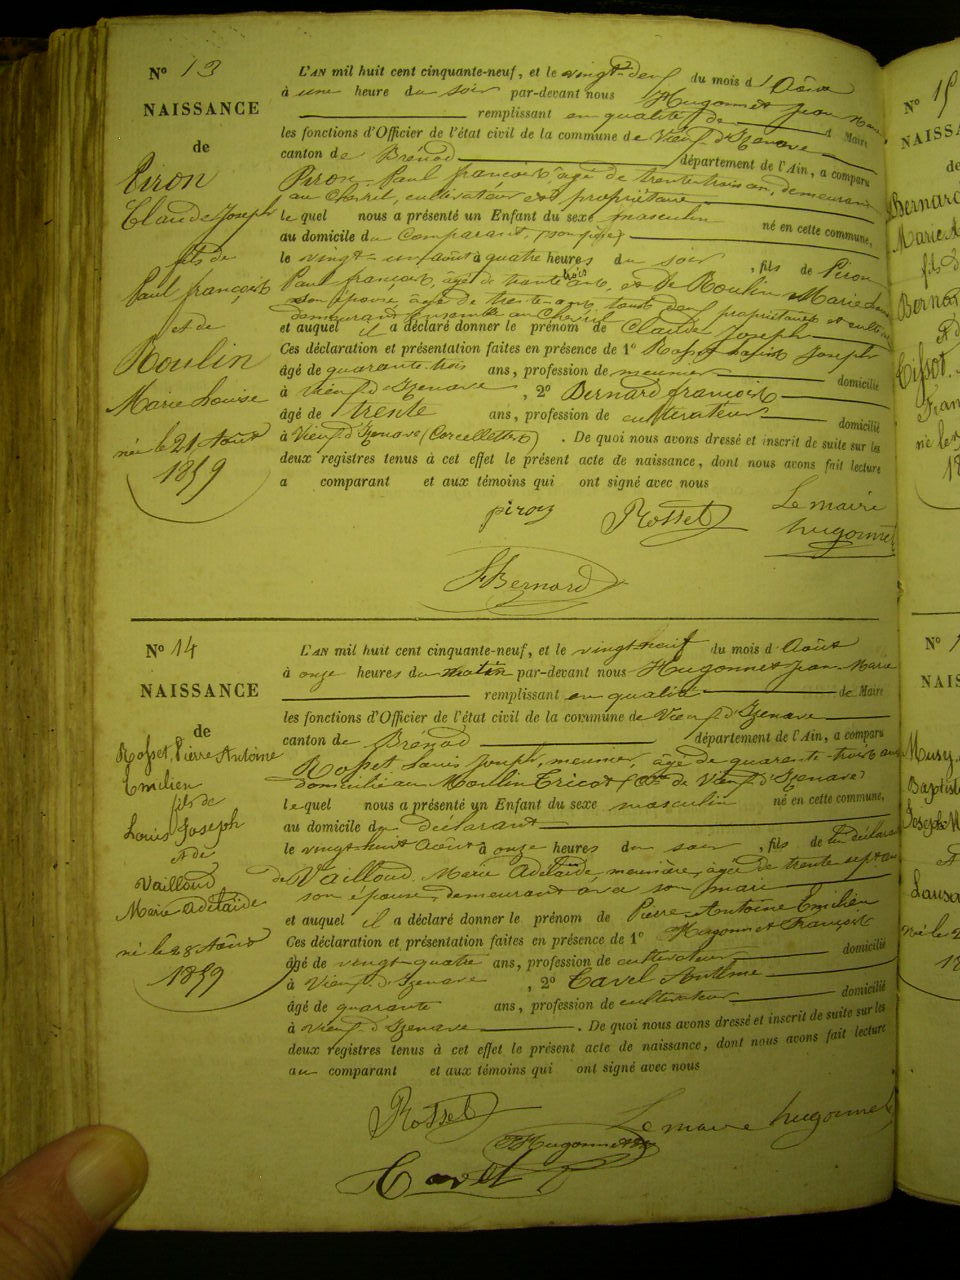 N° 13
NAISSANCE
de
Piron
Claude Joseph
fils de
Paul françois
et de
Roulin
Marie Louise
né le 21 Août
1859
L'AN mil huit cent cinquante-neuf, et le vingt-deux du mois d'Août
à une heure du soir par-devant nous Hugonnet Jean Marie
remplissant en qualité de Maire
les fonctions d'Officier de l'état civil de la commune de Vieux d'Izenave
canton de Brénod département de l'Ain, a comparu
Piron Paul françois âgé de trente trois ans, demeurant
au Chevril, cultivateur et propriétaire
le quel nous a présenté un Enfant du sexe masculin né en cette commune,
au domicile du Comparant,
le vingt-un août à quatre heures du soir, fils de Piron
Paul françois, âgé de trente trois ans, et de Roulin Marie Louise
son épouse, âgée de trente ans, tous deux propriétaires et
demeurant ensemble au Chevril
et auquel il a déclaré donner le prénom de Claude Joseph
Ces déclaration et présentation faites en présence de 1° Rosset Joseph
âgé de quarante trois ans, profession de meunier domicilié
à Vieux d'Izenave, 2° Bernard françois
âgé de trente ans, profession de cultivateur domicilié
à Vieux d'Izenave (Corcellette). De quoi nous avons dressé et inscrit de suite sur les
deux registres tenus à cet effet le présent acte de naissance, dont nous avons fait lecture
a comparant et aux témoins qui ont signé avec nous
piron Rosset Le maire
hugonnet
F Bernard
N° 14
NAISSANCE
de
Rosset Pierre Antoine
Emilien
fils de
Louis Joseph
et de
Vailloud
Marie Adelaïde
né le 28 Août
1859
L'AN mil huit cent cinquante-neuf, et le vingt neuf du mois d'Août
à onze heures du matin par-devant nous Hugonnet Jean Marie
remplissant en qualité de Maire
les fonctions d'Officier de l'état civil de la commune de Vieux d'Izenave
canton de Brénod département de l'Ain, a comparu
Rosset Louis Joseph, meunier, âgé de quarante trois ans
domicilié au Moulin Tricot (Cne de Vieux d'Izenave)
lequel nous a présenté un Enfant du sexe masculin né en cette commune,
au domicile du déclarant
le vingt huit Août à onze heures du soir, fils de du déclarant
de Vailloud Marie Adelaïde, meunière, âgée de trente sept ans
son épouse, demeurant avec son mari
et auquel il a déclaré donner le prénom de Pierre Antoine Emilien
Ces déclaration et présentation faites en présence de 1° Hugonnet François
âgé de vingt-quatre ans, profession de cultivateur domicilié
à Vieux d'Izenave, 2° Cavet Anthime
âgé de quarante ans, profession de cultivateur domicilié
à Vieux d'Izenave. De quoi nous avons dressé et inscrit de suite sur les
deux registres tenus à cet effet le présent acte de naissance, dont nous avons fait lecture
au comparant et aux témoins qui ont signé avec nous
Rosset Le maire hugonnet
Hugonnet
Cavet
N° 15